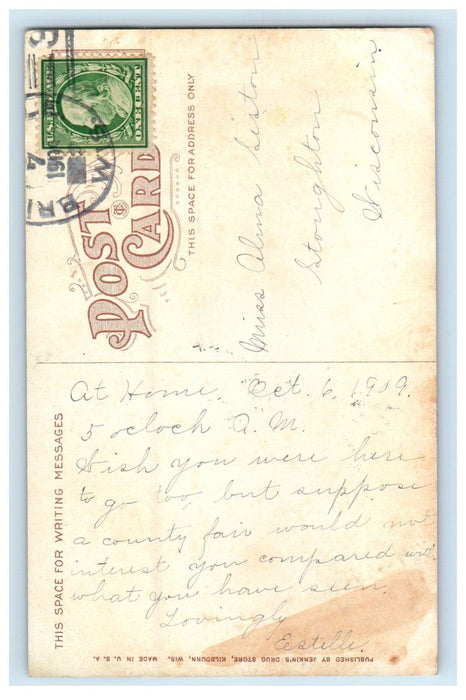 U.S. POSTAGE
ONE CENT
POST CARD
THIS SPACE FOR ADDRESS ONLY
Miss Alma Siston
Stoughton
Wisconsin
THIS SPACE FOR WRITING MESSAGES
At Home. Oct. 6, 1909.
5 oclock A.M.
Wish you were here
to go too, but suppose
a county fair would not
interest you compared with
what you have seen.
Lovingly
Estelle.
PUBLISHED BY JENKIN'S DRUG STORE, KILBOURN, WIS. MADE IN U. S. A.